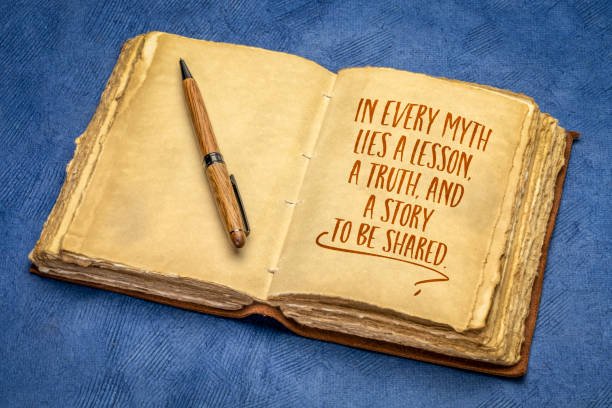 IN EVERY MYTH
LIES A LESSON,
A TRUTH, AND
A STORY
TO BE SHARED.